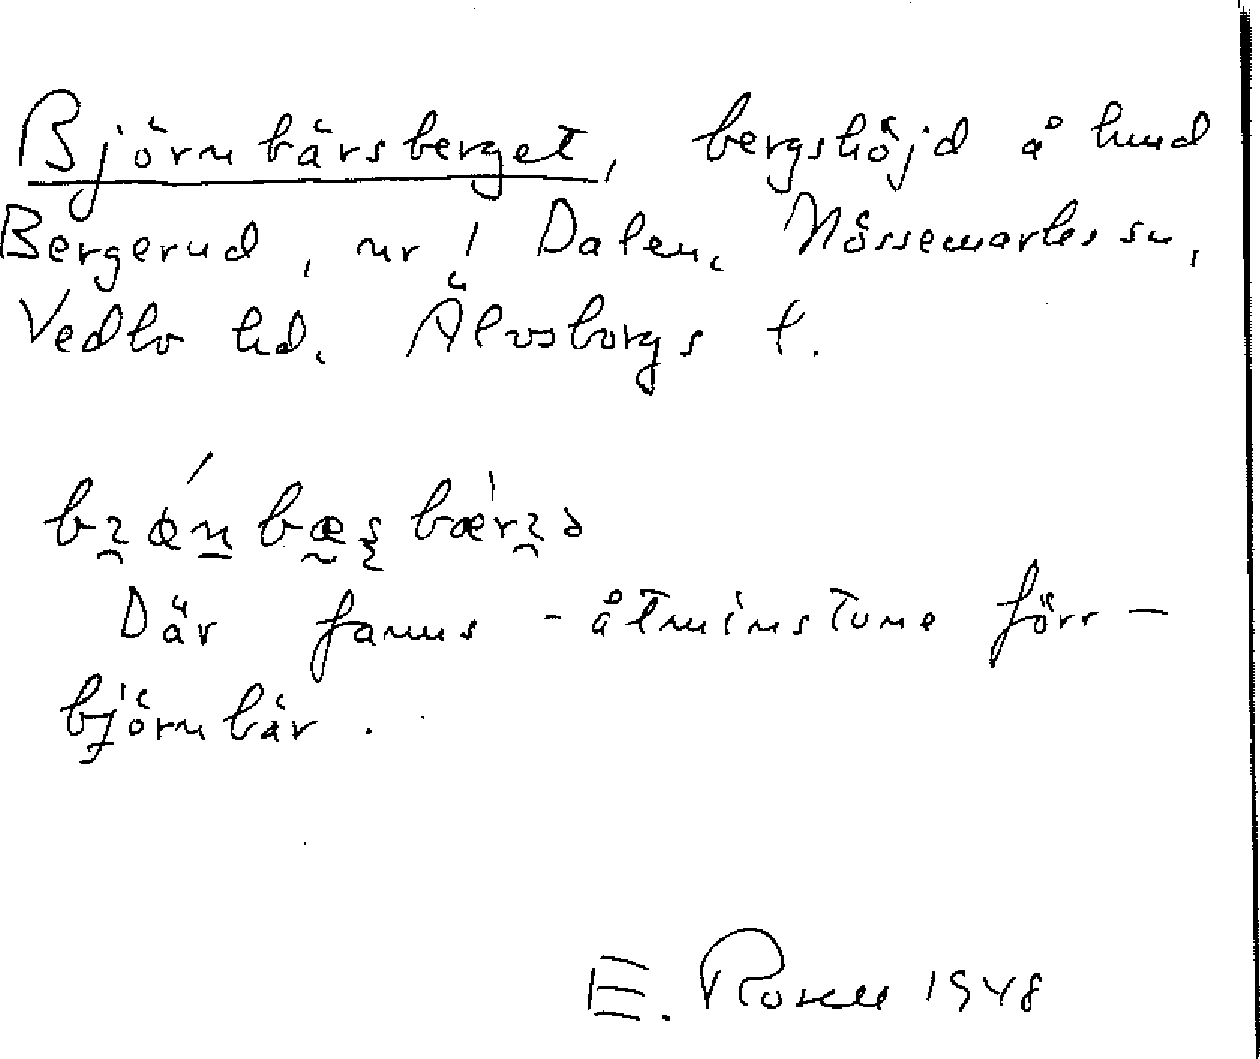 Björnbärsberget, bergshöjd å hmd
Bergerud, nr 1 Dalen, Nössemarks sn,
Vedbo hd. Älvsborgs l.
Där fanns - åtminstone förr -
björnbär.
E. Rosell 1948